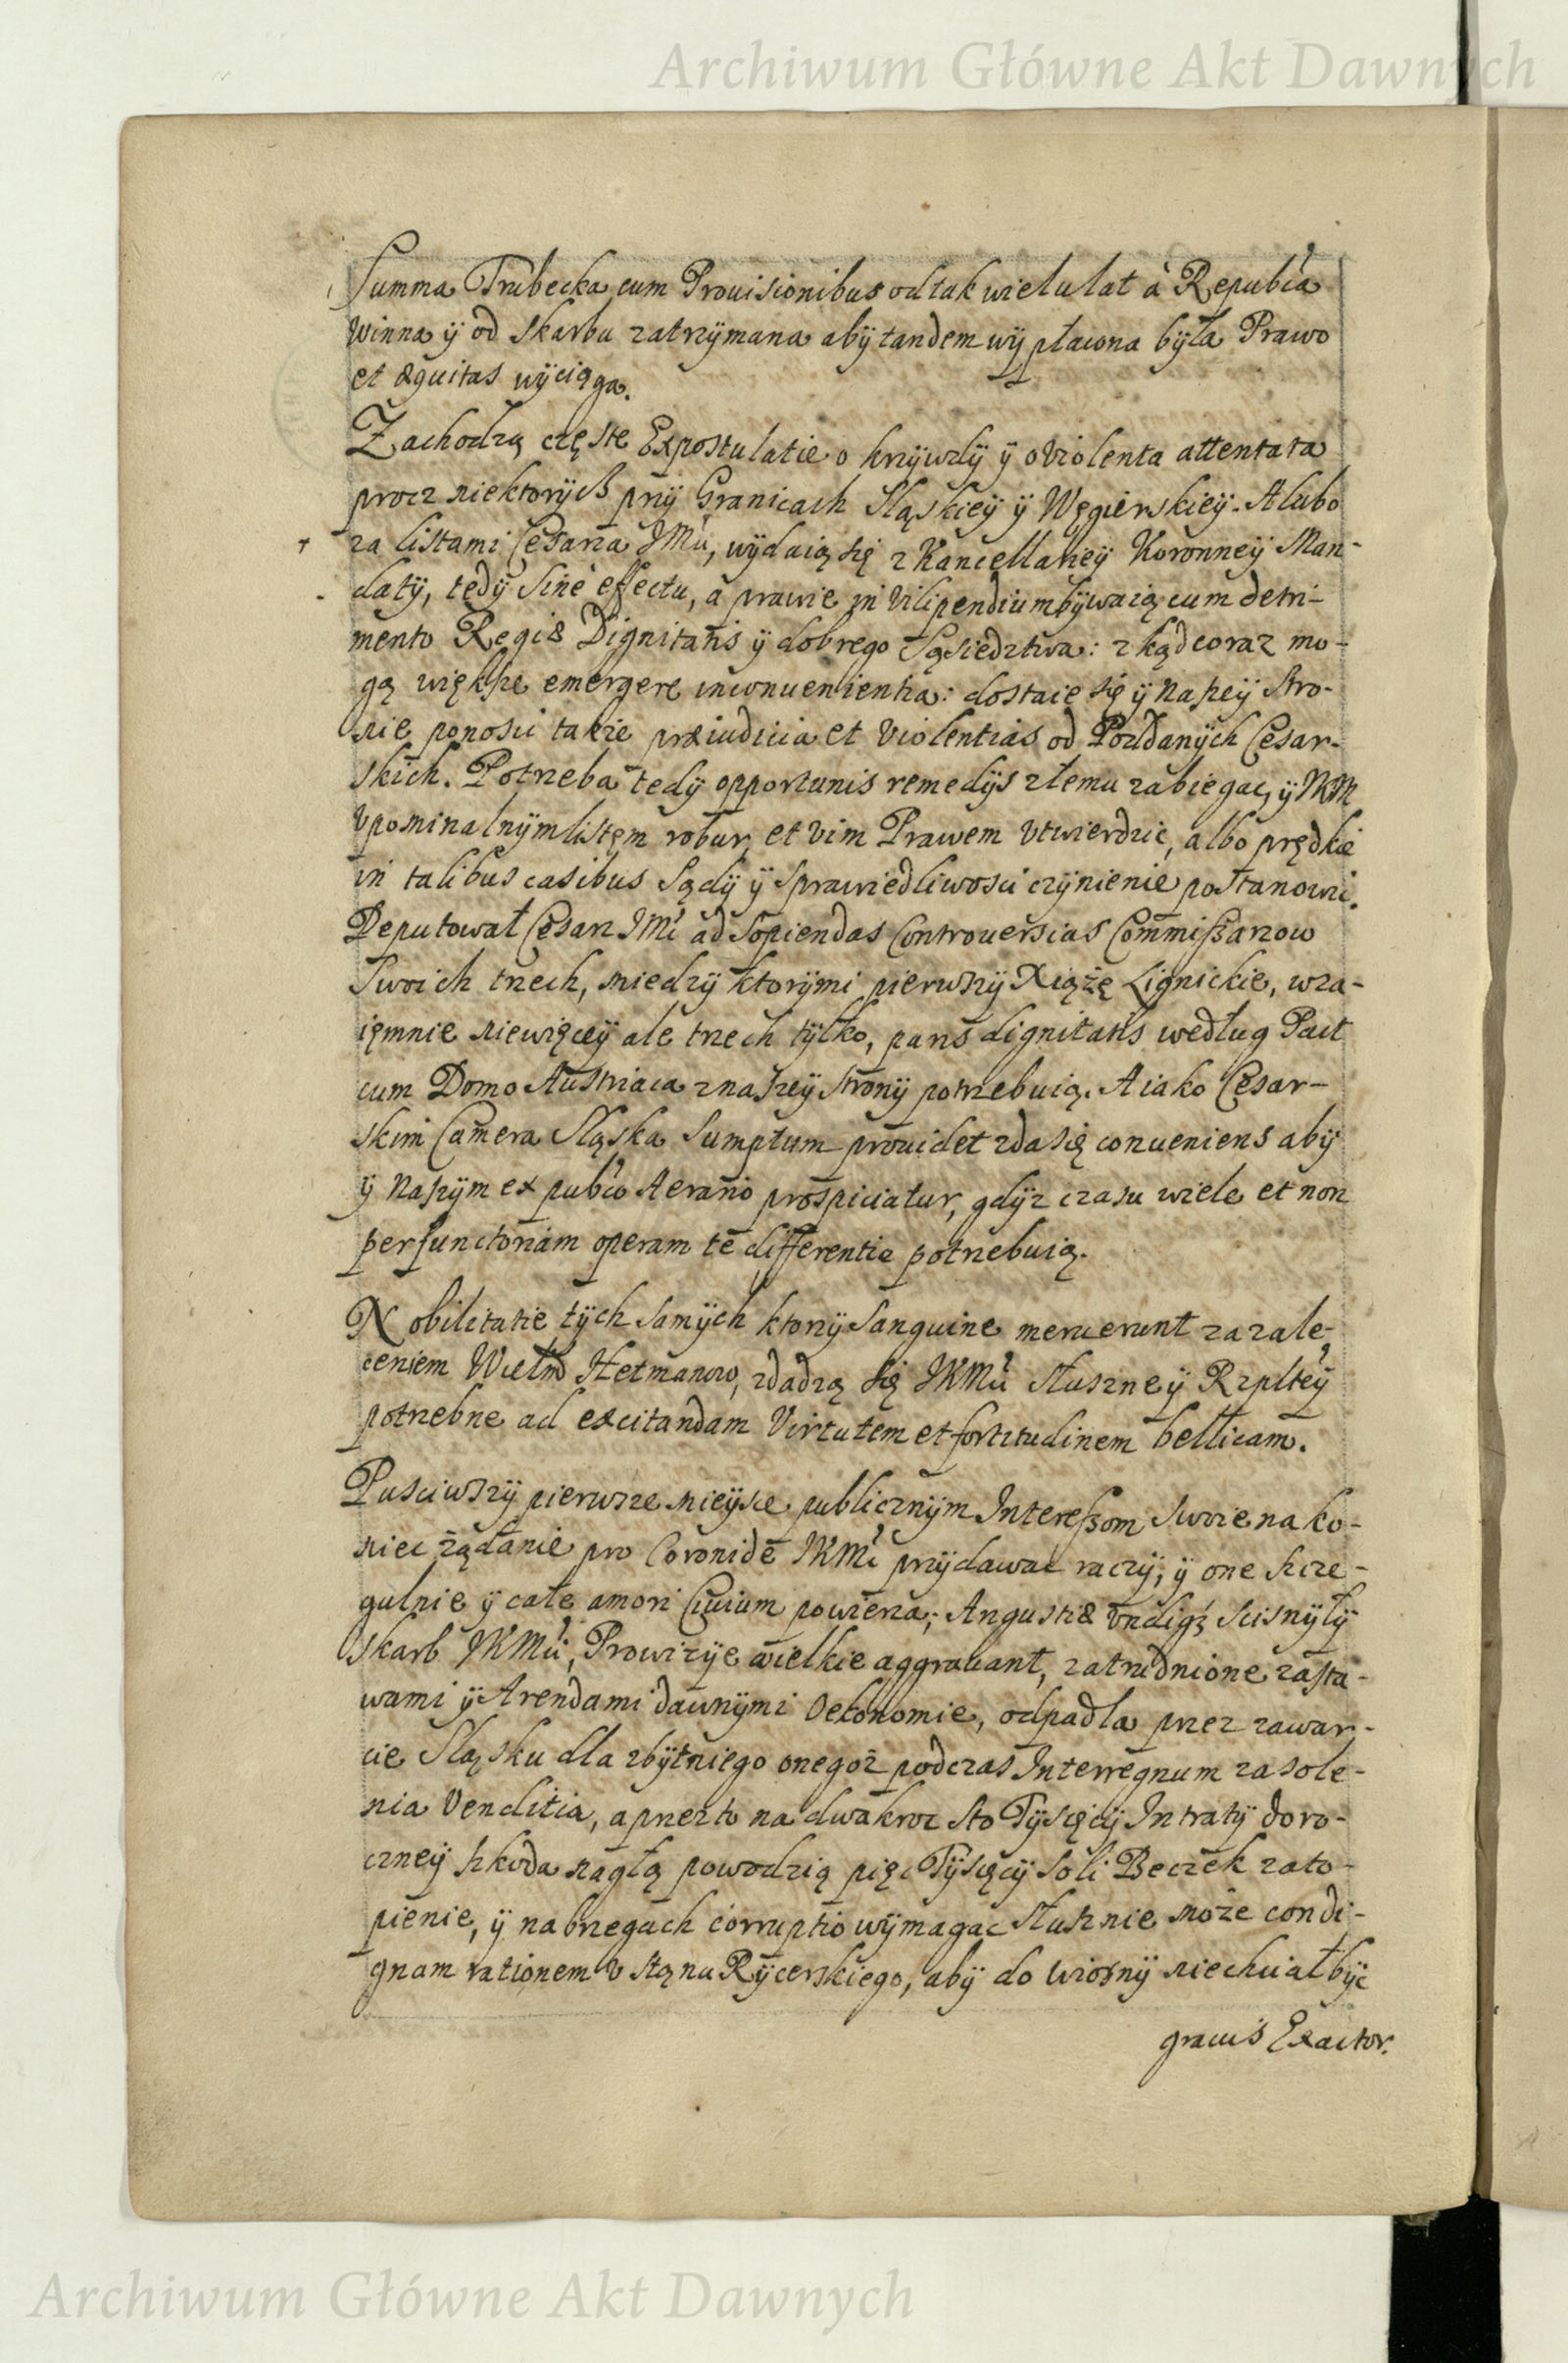 Archiwum Główne Akt Dawnych
Summa Trubecka cum Prouisionibus od tak wielu lat à Republ̃ca
winna ÿ od Skarbu zatrzÿmana abÿ tandem wÿpłacona bÿła Prawo
et æquitas wÿciąga.
Zachodzą częste Expostulatie o krzÿwdÿ ÿ o violenta attentata
procz niektorÿch przÿ Granicach Sląskieÿ ÿ Węgierskieÿ. A lubo
za listami Cesarza JMci, wÿdaią się z Kancellarieÿ Koronneÿ Man-
datÿ, tedÿ sine effectu, a prawie in vilipendium bÿwaią cum detri-
mento Regiæ Dignitatis ÿ dobrego Sąsiedztwa: zkąd coraz mo-
gą większe emergere inconuenientia: dostaie się ÿ naszeÿ stro-
nie ponosic takie præiudicia et violentias od Poddanÿch Cesar-
skich. Potrzeba tedÿ opportunis remedÿs złemu zabiegac, ÿ JKM
vpominalnÿm listem robur et vim Prawem vtwierdzic, albo prędkie
in talibus casibus Sądÿ ÿ sprawiedliwosci czÿnienie postanowic.
Deputował Cesarz JMc ad sopiendas Controuersias Commissarzow
swoich trzech, miedzÿ ktorÿmi pierwszÿ Xiążę Lignickie, wza-
iemnie niewięceÿ ale trzech tÿlko, paris dignitatis według Pact
cum Domo Austriaca z naszeÿ stronÿ potrzebuią. A iako Cesar-
skim Camera Sląska sumptum prouidet zda się conueniens abÿ
ÿ naszÿm ex publ̃co Aerario prospiciatur, gdÿz czasu wiele et non
perfunctoriam operam te differentie potrzebuią.
Nobilitatie tÿch samÿch ktorzÿ sanguine meruerunt za zale-
ceniem Wielm Hetmanow, zdadzą się JKMci słuszne ÿ Rzplteÿ
potrzebne ad excitandam Virtutem et fortitudinem bellicam.
Pusciwszÿ pierwsze mieÿsce publicznÿm Interessom swoie na ko-
niec żądanie pro Coronide JKMc przÿdawac raczÿ, ÿ one szcze-
gulnie ÿ całe amori Ciuium powierza; Angustiæ vndiq3 scisnÿłÿ
skarb JKMci, Prowizÿe wielkie aggrauant, zatrudnione zasta-
wami ÿ Arendami dawnÿmi Oekonomie, odpadła przez zawar-
cie Sląsku dla zbÿtniego onegoż podczas Interregnum zasole-
nia Venditia, a przez to na dwakroc sto Tÿsięcÿ Intratÿ doro-
czneÿ szkoda nagłą powodzią pięc Tÿsięcÿ soli Beczek zato-
pienie, ÿ na brzegach corruptio wÿmagac słusznie może condi-
gnam rationem v stanu Rÿcerskiego, abÿ do wiosnÿ niechciał bÿc
grauis Exactor.
Archiwum Główne Akt Dawnych